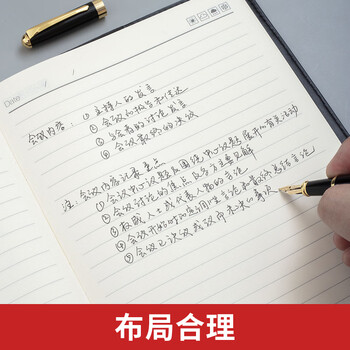 Date:
会议内容: ①主持人的发言
②会议的报告和传达
③与会者的讨论发言
④会议最终的决议
注: 会议内容记录重点
①会议中心议题及围绕中心议题展开的有关活动
②会议讨论的焦点及各方主要见解
③权威人士或代表人物的言论
④会议开始时的定调性言论和结束总结言论
⑤会议已决议或议而未决的事项
布局合理